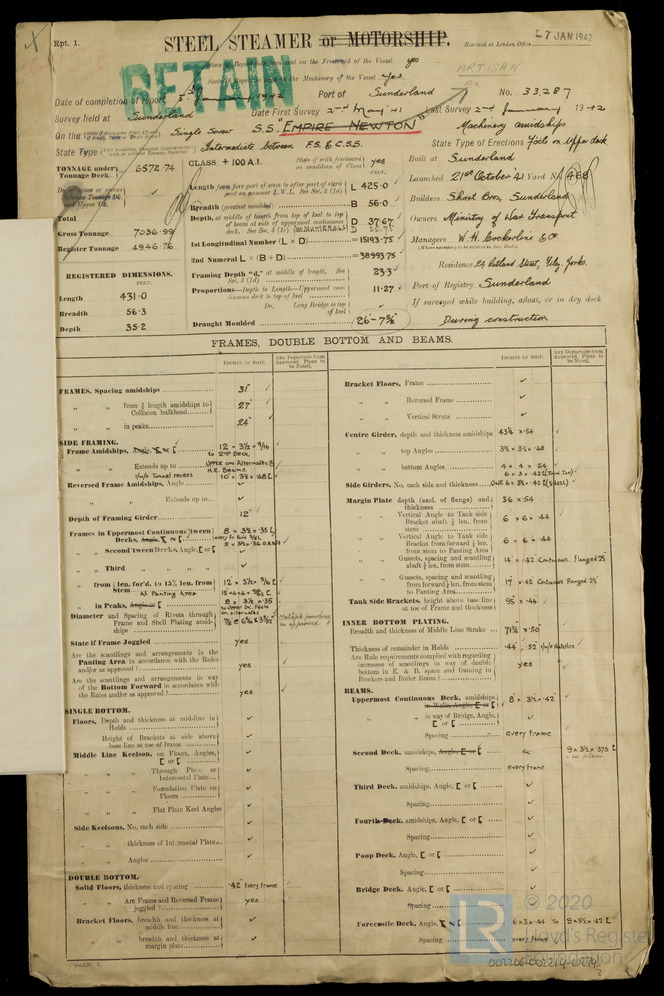 Rpt. 1.
STEEL STEAMER or MOTORSHIP.
Received at London Office
7 JAN 1942
RETAIN
State if Report is sent on the Freeboard of the Vessel yes
State if Report is sent on the Machinery of the Vessel Yes.
ARTISAN
Date of completion of report 5th January 1942 Port of Sunderland No. 33,287
Survey held at Sunderland Date First Survey 2nd May '41 Last Survey 2nd January 1942
On the Single Screw S.S. "EMPIRE NEWTON" Machinery amidships
State Type Intermediate between F.S. & C.S.S. State Type of Erections Focle on Upper deck
TONNAGE under Tonnage Deck 6572.74
Total
Gross Tonnage 7036.99
Register Tonnage 4946.76
REGISTERED DIMENSIONS.
FEET.
Length 431.0
Breadth 56.3
Depth 35.2
CLASS +100A.1. State if (with freeboard) as condition of Class yes
Length from fore part of stem to after part of stern post on summer L.W.L. See Sec. 3 (1a) L 425.0
Breadth (greatest moulded) B 56.0
Depth, at middle of length from top of keel to top of beam at side of uppermost continuous deck. See Sec. 3 (1c) D 37.67
1st Longitudinal Number (L × D) = 15193.75
2nd Numeral L × (B + D) = 38993.75
Framing Depth "d," at middle of length. See Sec. 3 (1d) 23.3
Proportions—Depth to Length—Uppermost continuous deck to top of keel 11.27
Do. Long Bridge to top of keel
Draught Moulded 26'-7⅝"
Built at Sunderland
Launched 21st October '41 Yard No. 468
Builders Short Bros, Sunderland
Owners Ministry of War Transport
Managers W. H. Cockerline & Co
Residence 24 Rutland Street, Filey, Yorks.
Port of Registry Sunderland
If surveyed while building, afloat, or in dry dock
During construction
FRAMES, DOUBLE BOTTOM AND BEAMS.
INCHES IN SHIP.
Any Departure from Approved Plans to be Noted.
INCHES IN SHIP.
Any Departure from Approved Plans to be Noted.
FRAMES, Spacing amidships 31"
" " from ⅗ length amidships to Collision bulkhead 27"
" " in peaks 24"
SIDE FRAMING.
Frame Amidships, Angle, [ or [ 12 × 3½ × 9/16 to 2nd Deck
" " Extends up to Upper on Alternates & H.E. Beams.
Reversed Frame Amidships, Angle
" " Extends up to
Depth of Framing Girder 12"
Frames in Uppermost Continuous 'tween Decks, Angle, [ or [ 8 × 3½ × .35 [
" " Second 'tween Decks, Angle, [ or [
" " Third " "
" " from ⅕ len. for'd. to 15% len. from Stem
" " at Panting Area
" " in Peaks, Angle or [ 8 × 3½ × .35
Diameter and Spacing of Rivets through Frame and Shell Plating amidships
State if Frame Joggled yes
Are the scantlings and arrangements in the Panting Area in accordance with the Rules and/or as approved? yes
Are the scantlings and arrangements in way of the Bottom Forward in accordance with the Rules and/or as approved? yes
SINGLE BOTTOM.
Floors, Depth and thickness at mid-line in Holds
" Height of Brackets at side above base line at toe of frame
Middle Line Keelson, on Floors, Angles, [ or [
" " Through Plate or Intercostal Plate
" " Foundation Plate on Floors
" " Flat Plate Keel Angles
Side Keelsons, No. each side
" " thickness of Intercostal Plate
" " Angles
DOUBLE BOTTOM.
Solid Floors, thickness and spacing .42 Every frame
" " Are Frame and Reversed Frame joggled? yes
Bracket Floors, breadth and thickness at middle line
" " breadth and thickness at margin plate
Bracket Floors, Frame
" " Reversed Frame
" " Vertical Struts
Centre Girder, depth and thickness amidships 43¾ × .54
" " top Angles 3½ × 3½ × .48
" " bottom Angles 4 × 4 × .54
Side Girders, No. each side and thickness ONE
Margin Plate depth (excl. of flange) and thickness 36 × .54
" " Vertical Angle to Tank side Bracket abaft ¼ len. from stem 6 × 6 × .44
" " Vertical Angle to Tank side Bracket from forward ¼ len. from stem to Panting Area 6 × 6 × .44
" " Gussets, spacing and scantling abaft ¼ len. from stem 14 × .42 Continuous. Flanged 2½"
" " Gussets, spacing and scantling from forward ¼ len. from stem to Panting Area 17 × .42 Continuous Flanged 2½"
Tank Side Brackets, height above base line at toe of Frame and thickness 95 × .44
INNER BOTTOM PLATING.
Breadth and thickness of Middle Line Strake 71¾ × .50
Thickness of remainder in Holds .44 .52 u/o Hatches
Are Rule requirements complied with regarding increases of scantlings in way of double bottom in E. & B. space and framing in Bunkers and Boiler Room? yes
BEAMS.
Uppermost Continuous Deck, amidships in Wells, Angle, [ or [ 8 × 3½ × .42
" " in way of Bridge, Angle, [ or [
Spacing every frame
Second Deck, amidships, Angle, [ or [ 9 × 3½ × .375 [
Spacing every frame
Third Deck, amidships, Angle, [ or [
Spacing
Fourth Deck, amidships, Angle, [ or [
Spacing
Poop Deck, Angle, [ or [
Spacing
Bridge Deck, Angle, [ or [
Spacing
Forecastle Deck, Angle, [ or [ 6 × 3 × .44 to 9 × 3½ × .42 [
Spacing every frame
© 2020
Lloyd's Register
Foundation
002206-002214-0274